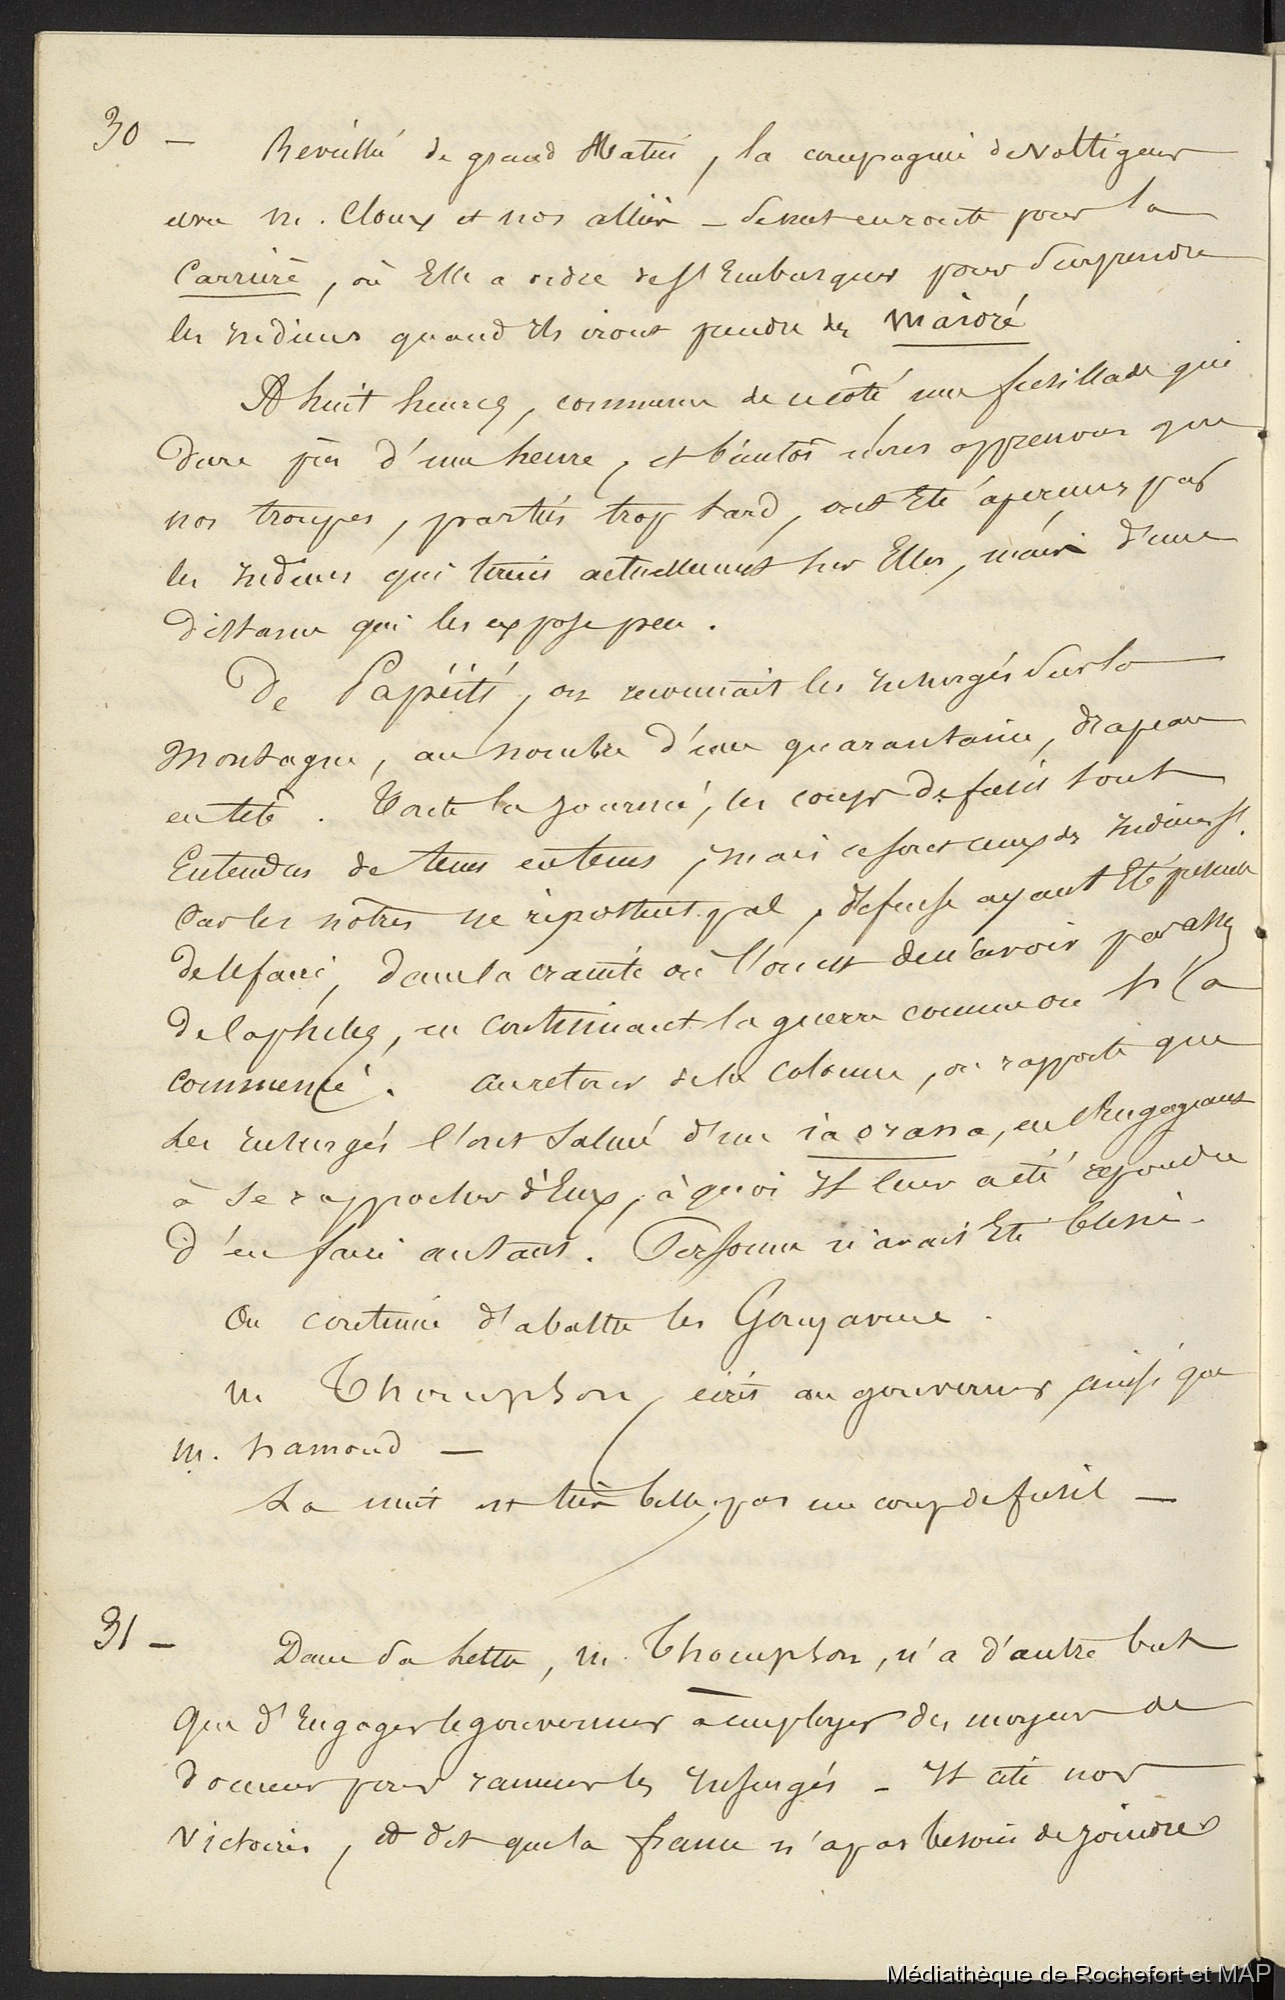 30 — Reveillé de grand Matin, la compagnie de voltigeur
avec M. Cloux et nos alliés — se met en route pour la
Carriere, où Elle a ordre de s'Embarquer pour surprendre
les Indiens quand ils iront prendre des Maioré
A huit heures, commence de ce côté une fusillade qui
dure près d'une heure, et bientôt nous apprenons que
nos troupes, parties trop tard, ont Eté aperçues par
les Indiens qui tirent actuellement sur Elles, mais d'une
distance qui les expose peu.
De Papéiti, on reconnait les insurgés sur la
Montagne, au nombre d'une quarantaine, drapeau
en tête. Toute la journée, les coups de fusil sont
Entendus de tems en tems, mais ce sont ceux des Indiens
Car les nôtres ne ripostent pas, défense ayant Eté
de le faire, dans la crainte où l'on est de n'avoir pas assez
de capsules, en continuant la guerre comme on l'a
commencé. Au retour de la colonne, on rapporte que
les insurgés l'ont salué d'un ia orana, en l'Engageant
à se rapprocher d'Eux, à quoi Il leur a été repondu
d'en faire autant. Personne n'avait Eté blessé.
On continue d'abattre les Gouyaviers.
M Thompson, écrit au gouverneur, ainsi que
M. Hamond —
La nuit est très belle, pas un coup de fusil —
31 — Dans sa lettre, M. Thompson, n'a d'autre but
que d'Engager le gouverneur à employer des moyens de
douceur pour ramener les Insurgés — Il cite nos
Victoires, et dit que la france n'a pas besoin de joindre
Médiathèque de Rochefort et MAP